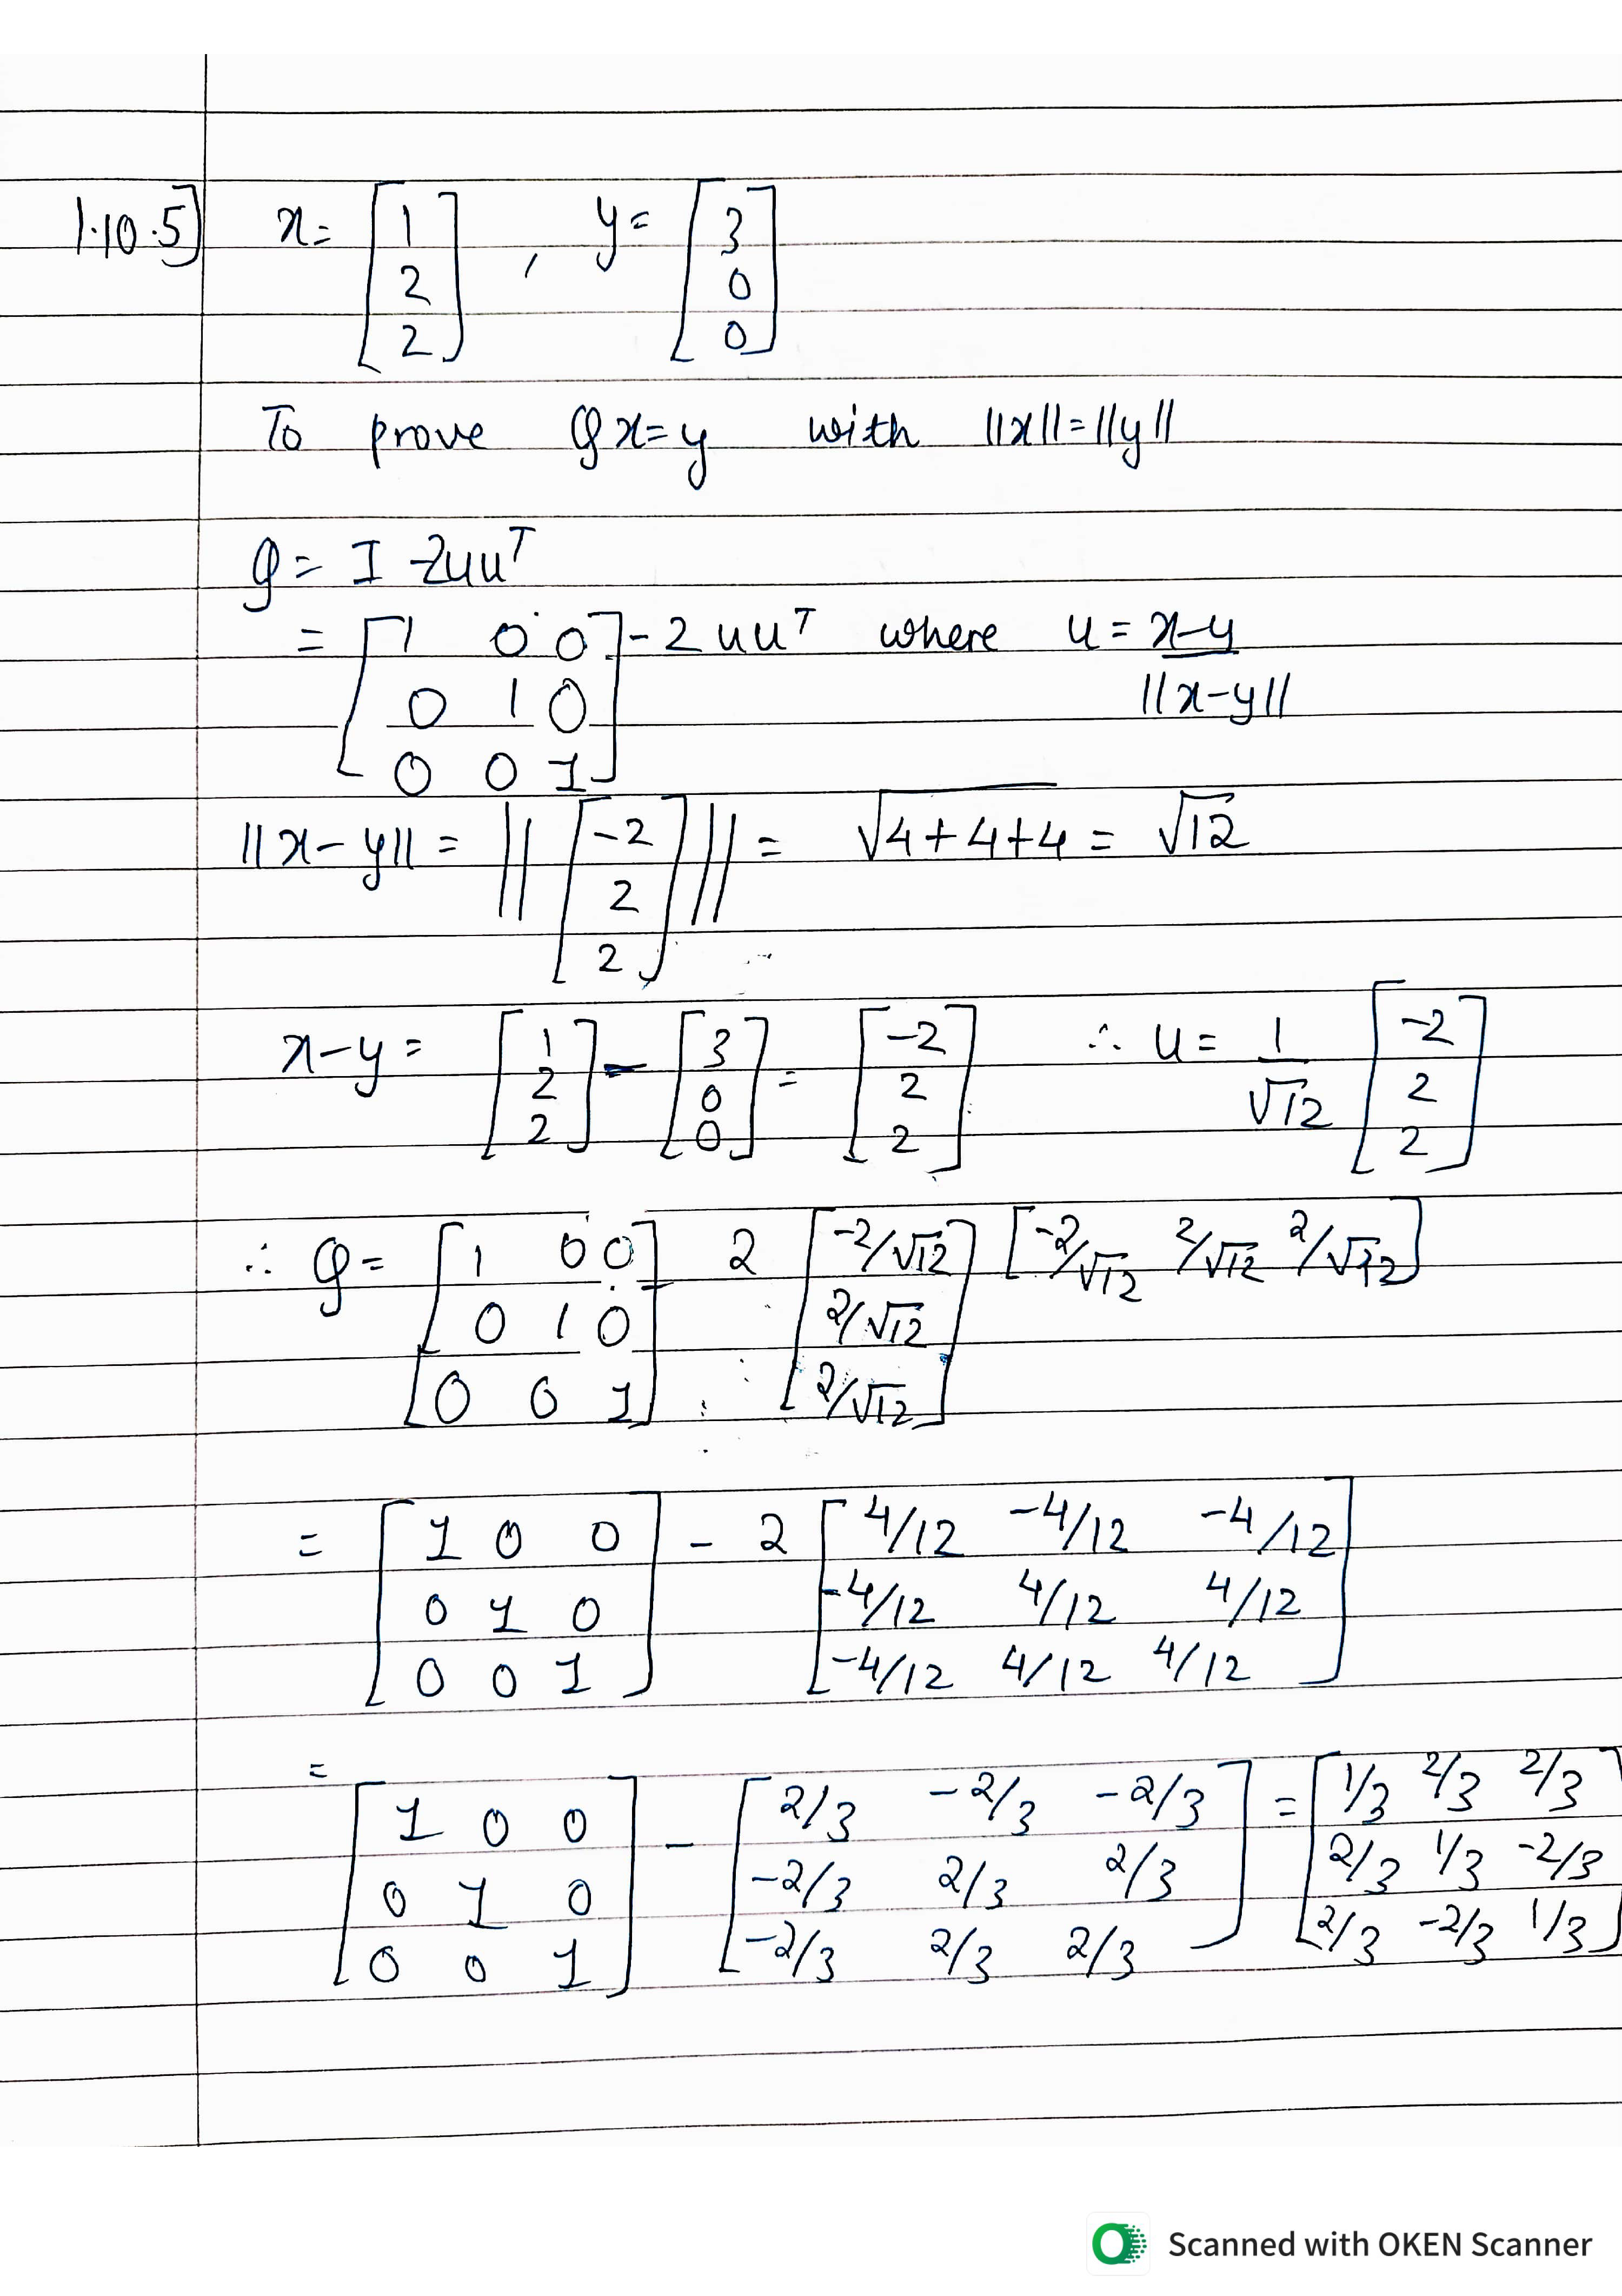 1.10.5] x= [1 2 2] , y= [3 0 0]
To prove Qx=y with ||x||=||y||
Q= I -2uuᵀ
= [1 0 0; 0 1 0; 0 0 1] - 2uuᵀ where u= x-y / ||x-y||
||x-y|| = || [-2 2 2] || = √4+4+4 = √12
x-y = [1 2 2] - [3 0 0] = [-2 2 2] ∴ u= 1/√12 [-2 2 2]
∴ Q= [1 0 0; 0 1 0; 0 0 1] - 2 [-2/√12 2/√12 2/√12] [-2/√12 2/√12 2/√12]
= [1 0 0; 0 1 0; 0 0 1] - 2 [4/12 -4/12 -4/12; -4/12 4/12 4/12; -4/12 4/12 4/12]
= [1 0 0; 0 1 0; 0 0 1] - [2/3 -2/3 -2/3; -2/3 2/3 2/3; -2/3 2/3 2/3] = [1/3 2/3 2/3; 2/3 1/3 -2/3; 2/3 -2/3 1/3]
Scanned with OKEN Scanner